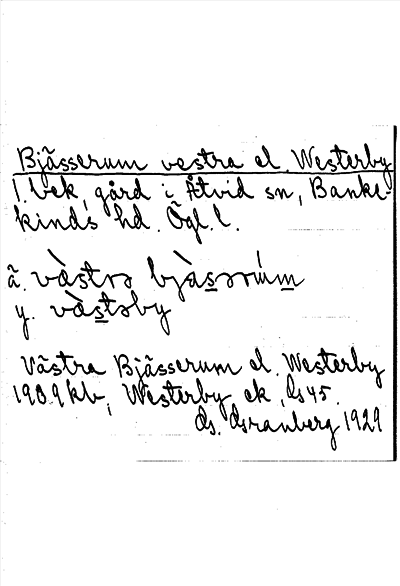 Bjässerum vestra el. Westerby
1. bek, gård i Åtvid sn, Banke-
kinds hd. Ögl. l.
ä. vä̀strə bjä̀sərúm
y. vä̀stəby
Västra Bjässerum el. Westerby
1909 kb, Westerby ek, ds 45.
Granberg 1929